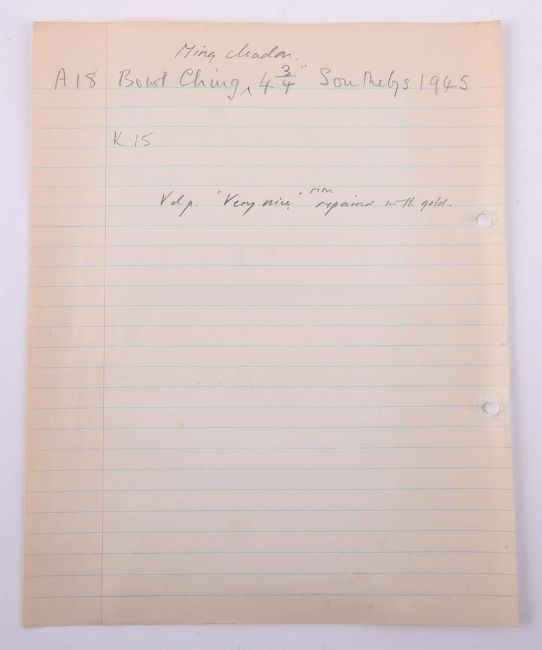 Ming celadon.
A18 Bowl Ching ^ 4 3/4" Sothebys 1945
K 15
rim
V d p. "Very nice." repaired with gold.